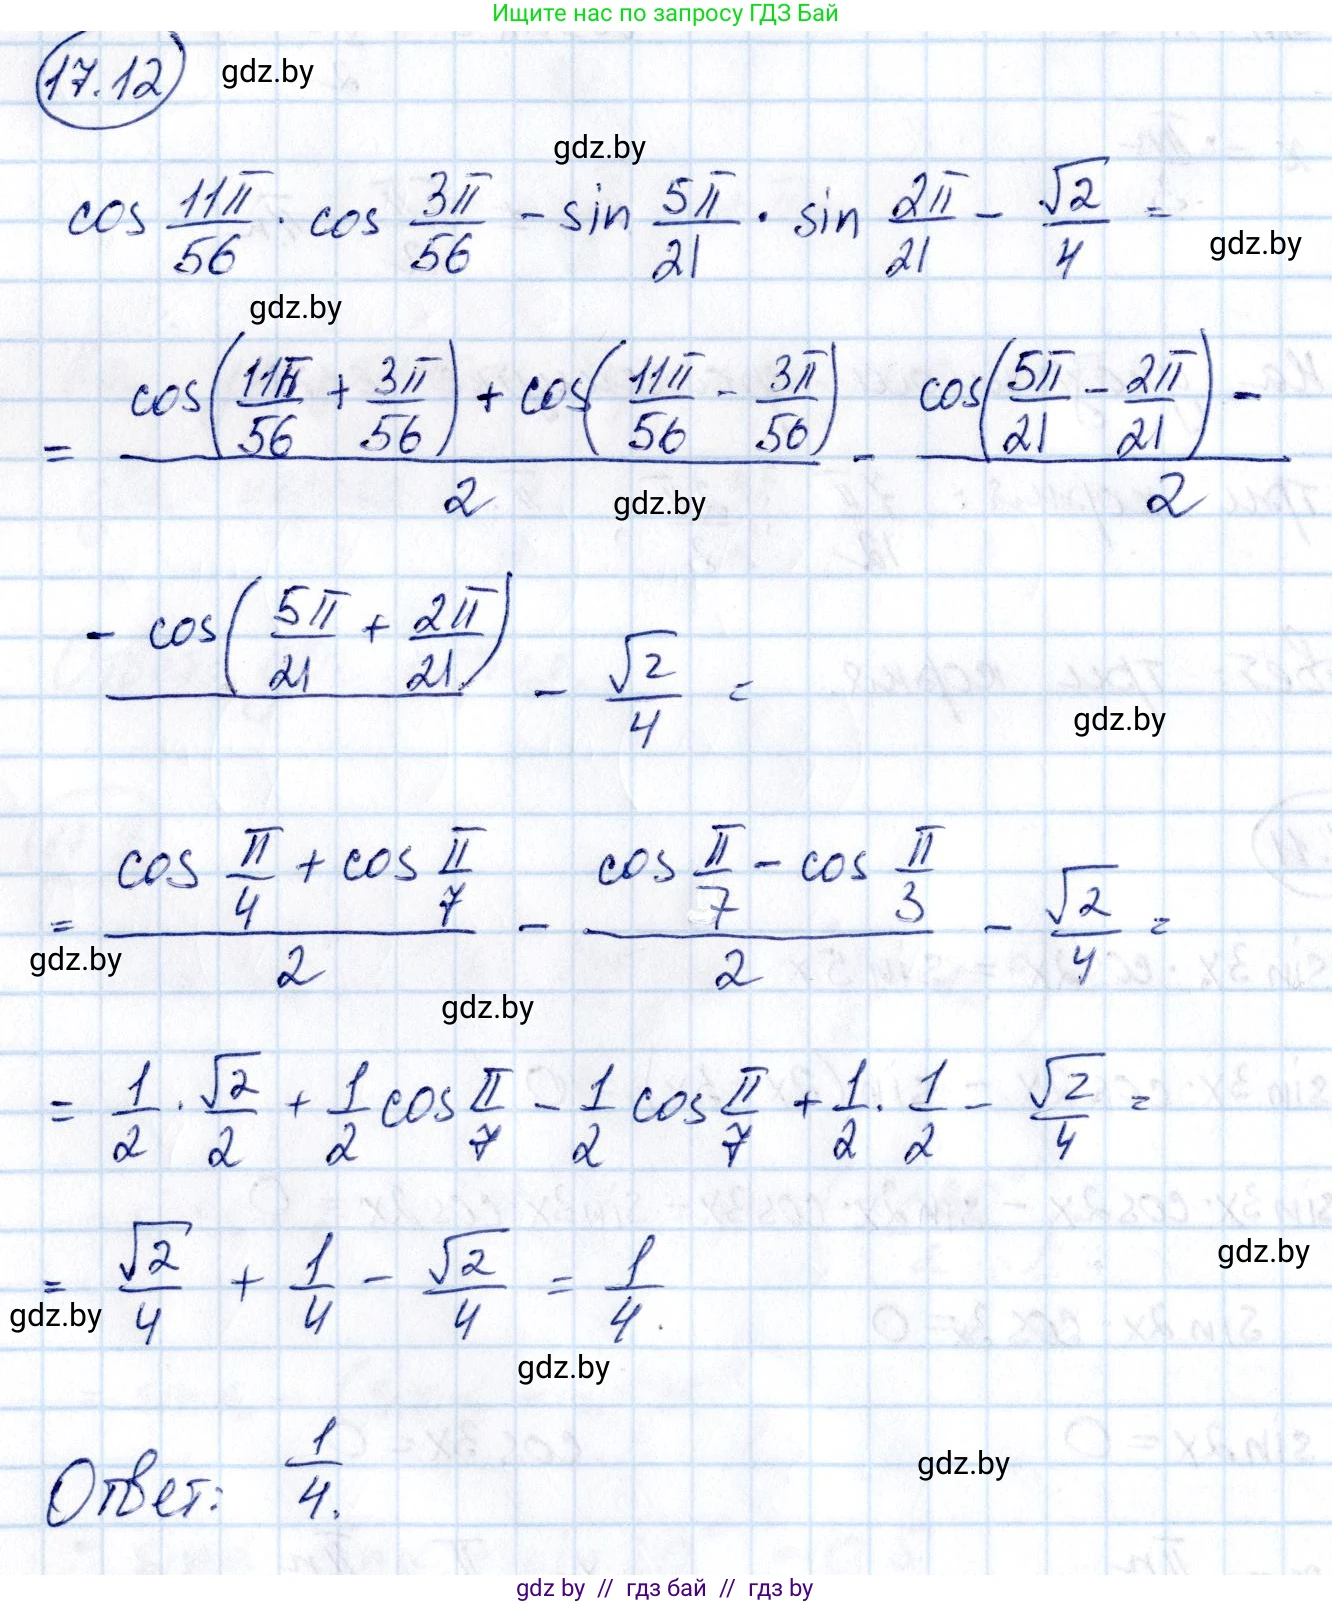 Ищите нас по запросу ГДЗ Бай
17.12 gdz.by
gdz.by
cos 11π/56 · cos 3π/56 - sin 5π/21 · sin 2π/21 - √2/4 =
gdz.by
gdz.by
= (cos(11π/56 + 3π/56) + cos(11π/56 - 3π/56))/2 - (cos(5π/21 - 2π/21) -)/2
gdz.by
- cos(5π/21 + 2π/21) - √2/4 =
gdz.by
= (cos π/4 + cos π/7)/2 - (cos π/7 - cos π/3)/2 - √2/4 =
gdz.by
gdz.by
= 1/2 · √2/2 + 1/2 cos π/7 - 1/2 cos π/7 + 1/2 · 1/2 - √2/4 =
= √2/4 + 1/4 - √2/4 = 1/4.
gdz.by
gdz.by
gdz.by
Ответ: 1/4.
gdz.by
gdz by // гдз бай // гдз by